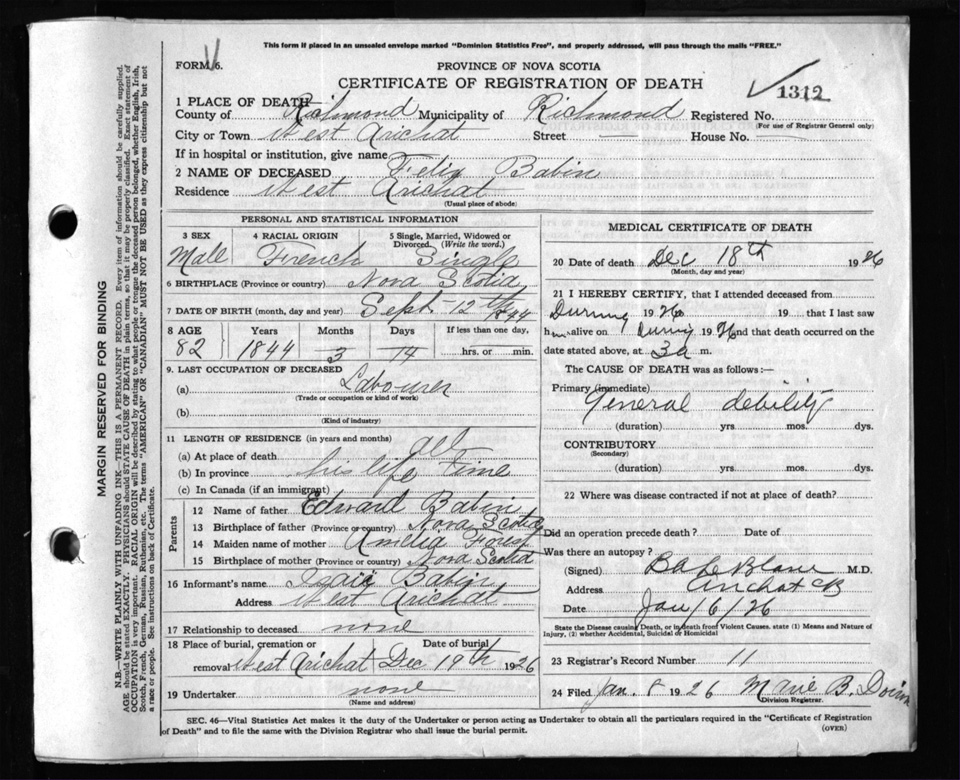 This form if placed in an unsealed envelope marked "Dominion Statistics Free", and properly addressed, will pass through the mails "FREE."
FORM 6.
PROVINCE OF NOVA SCOTIA
CERTIFICATE OF REGISTRATION OF DEATH
1312
1 PLACE OF DEATH
County of Richmond Municipality of Richmond Registered No.
(For use of Registrar General only)
City or Town West Arichat Street House No.
If in hospital or institution, give name
2 NAME OF DECEASED Felix Babin
Residence West Arichat
(Usual place of abode)
PERSONAL AND STATISTICAL INFORMATION
3 SEX 4 RACIAL ORIGIN 5 Single, Married, Widowed or Divorced. (Write the word.)
Male French Single
6 BIRTHPLACE (Province or country) Nova Scotia
7 DATE OF BIRTH (month, day and year) Sept 12th 1844
8 AGE Years Months Days If less than one day,
82 1844 3 14 hrs. or min.
9. LAST OCCUPATION OF DECEASED
(a) Labourer
(Trade or occupation or kind of work)
(b)
(Kind of industry)
11 LENGTH OF RESIDENCE (in years and months)
(a) At place of death all
(b) In province his life time
(c) In Canada (if an immigrant)
Parents
12 Name of father Edward Babin
13 Birthplace of father (Province or country) Nova Scotia
14 Maiden name of mother Amelia Forest
15 Birthplace of mother (Province or country) Nova Scotia
16 Informant's name Babin
Address West Arichat
17 Relationship to deceased none
18 Place of burial, cremation or removal Date of burial
West Arichat Dec 19th 1926
19 Undertaker none
(Name and address)
MEDICAL CERTIFICATE OF DEATH
20 Date of death Dec 18th 1926
(Month, day and year)
21 I HEREBY CERTIFY, that I attended deceased from
During 1926 19 that I last saw
him alive on During 1926 and that death occurred on the
date stated above, at 3a m.
The CAUSE OF DEATH was as follows:—
Primary (immediate)
General debility
(duration) yrs. mos. dys.
CONTRIBUTORY
(Secondary)
(duration) yrs. mos. dys.
22 Where was disease contracted if not at place of death?
Did an operation precede death? Date of
Was there an autopsy?
(Signed) LeBlanc M.D.
Address Arichat CB
Date Jan/6/26
State the Disease causing Death, or in death from Violent Causes. state (1) Means and Nature of Injury, (2) whether Accidental, Suicidal or Homicidal
23 Registrar's Record Number 11
24 Filed Jan. 8 1926 Marie B.
Division Registrar.
SEC. 46—Vital Statistics Act makes it the duty of the Undertaker or person acting as Undertaker to obtain all the particulars required in the "Certificate of Registration
of Death" and to file the same with the Division Registrar who shall issue the burial permit.
(OVER)
MARGIN RESERVED FOR BINDING
N.B.—WRITE PLAINLY WITH UNFADING INK—THIS IS A PERMANENT RECORD. Every item of information should be carefully supplied.
AGE should be stated EXACTLY. PHYSICIANS should STATE CAUSE OF DEATH in plain terms, so that it may be properly classified. Exact statement of
OCCUPATION is very important. RACIAL ORIGIN will be described by stating to what people or tongue the deceased person belonged, whether English, Irish,
Scotch, French, German, Russian, Ruthenian, etc. The terms "AMERICAN" or "CANADIAN" MUST NOT BE USED as they express citizenship but not
a race or people. See instructions on back of Certificate.